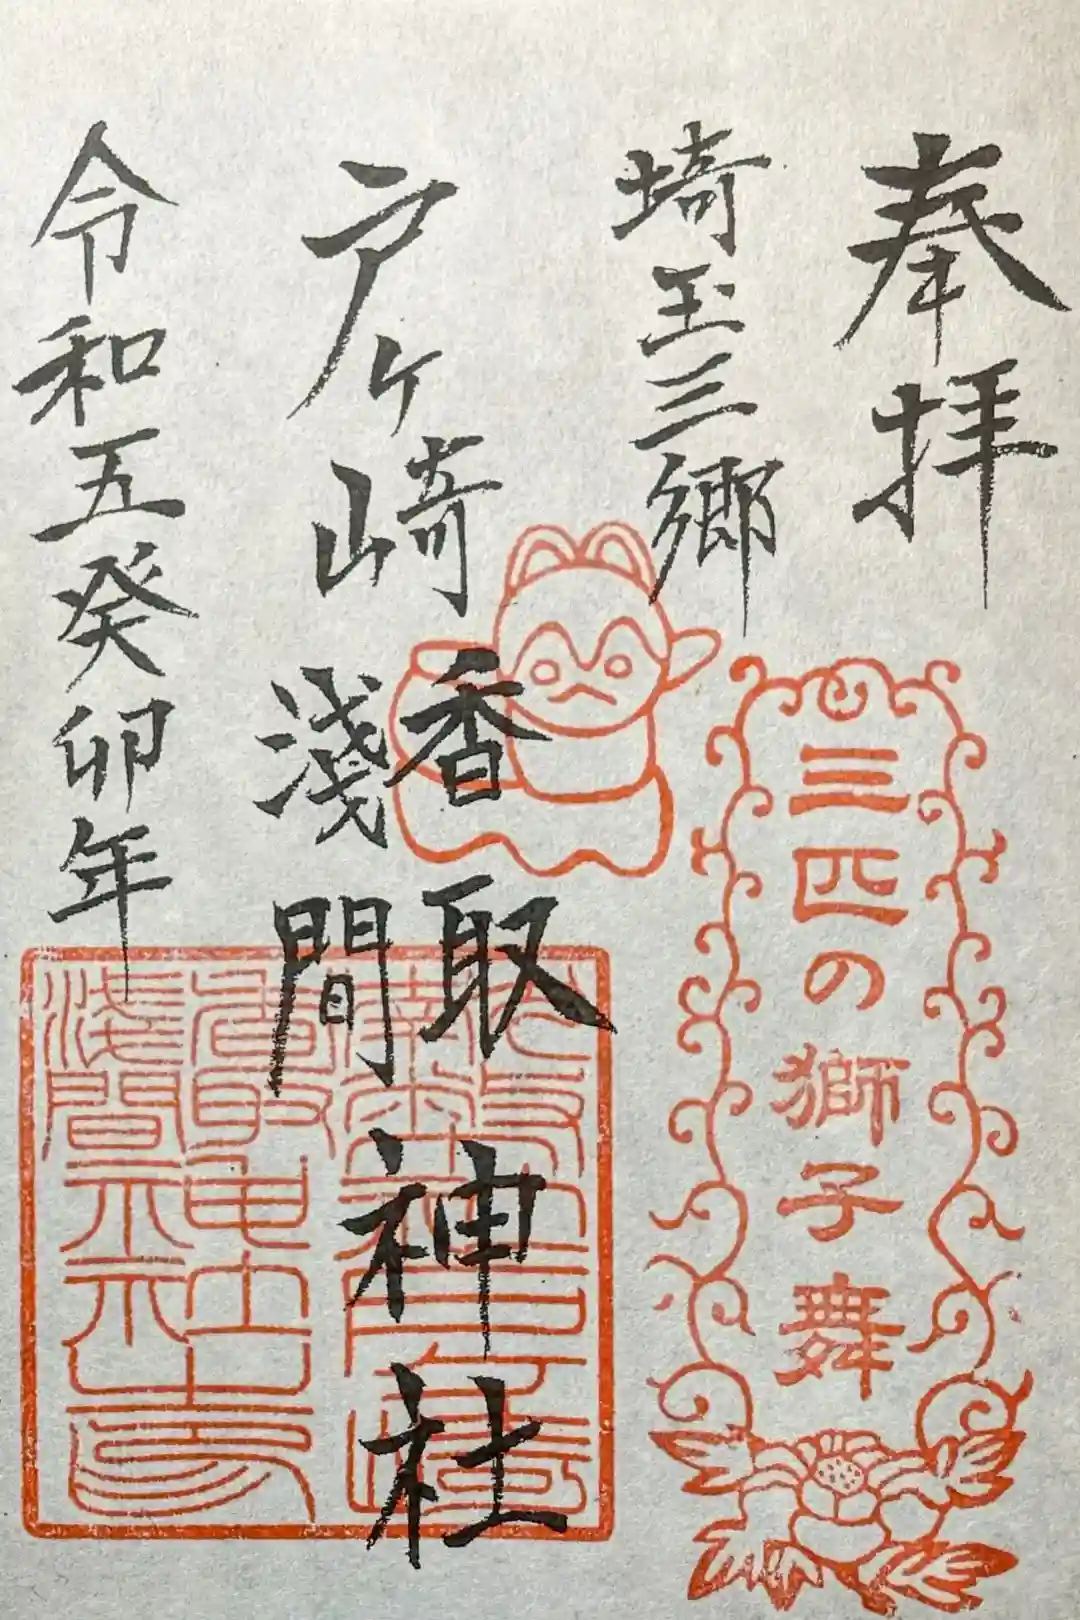 奉拝
埼玉三郷
三匹の獅子舞
戸ヶ崎
香取
浅間
神社
令和五癸卯年